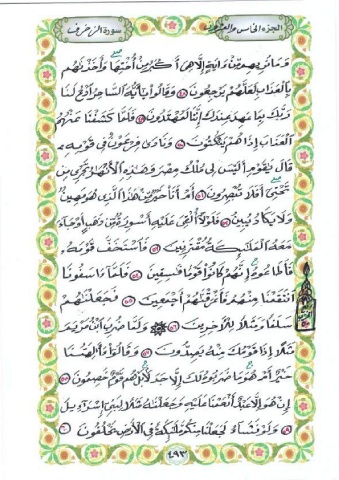 الجزء الخامس والعشرون
سورة الزخرف
وَمَا نُرِيهِم مِّنْ ءَايَةٍ إِلَّا هِيَ أَكْبَرُ مِنْ أُخْتِهَا وَأَخَذْنَٰهُم
بِالْعَذَابِ لَعَلَّهُمْ يَرْجِعُونَ ٤٨ وَقَالُوا يَٰأَيُّهَ السَّاحِرُ ادْعُ لَنَا
رَبَّكَ بِمَا عَهِدَ عِندَكَ إِنَّنَا لَمُهْتَدُونَ ٤٩ فَلَمَّا كَشَفْنَا عَنْهُمُ
الْعَذَابَ إِذَا هُمْ يَنكُثُونَ ٥٠ وَنَادَىٰ فِرْعَوْنُ فِي قَوْمِهِ
قَالَ يَٰقَوْمِ أَلَيْسَ لِي مُلْكُ مِصْرَ وَهَٰذِهِ الْأَنْهَٰرُ تَجْرِي مِن
تَحْتِي أَفَلَا تُبْصِرُونَ ٥١ أَمْ أَنَا خَيْرٌ مِّنْ هَٰذَا الَّذِي هُوَ مَهِينٌ
وَلَا يَكَادُ يُبِينُ ٥٢ فَلَوْلَا أُلْقِيَ عَلَيْهِ أَسْوِرَةٌ مِّن ذَهَبٍ أَوْ جَاءَ
مَعَهُ الْمَلَٰئِكَةُ مُقْتَرِنِينَ ٥٣ فَاسْتَخَفَّ قَوْمَهُ
فَأَطَاعُوهُ إِنَّهُمْ كَانُوا قَوْمًا فَٰسِقِينَ ٥٤ فَلَمَّا ءَاسَفُونَا
انتَقَمْنَا مِنْهُمْ فَأَغْرَقْنَٰهُمْ أَجْمَعِينَ ٥٥ فَجَعَلْنَٰهُمْ
سَلَفًا وَمَثَلًا لِّلْآخِرِينَ ٥٦ وَلَمَّا ضُرِبَ ابْنُ مَرْيَمَ
مَثَلًا إِذَا قَوْمُكَ مِنْهُ يَصِدُّونَ ٥٧ وَقَالُوا ءَأَٰلِهَتُنَا
خَيْرٌ أَمْ هُوَ مَا ضَرَبُوهُ لَكَ إِلَّا جَدَلًا بَلْ هُمْ قَوْمٌ خَصِمُونَ ٥٨
إِنْ هُوَ إِلَّا عَبْدٌ أَنْعَمْنَا عَلَيْهِ وَجَعَلْنَٰهُ مَثَلًا لِّبَنِي إِسْرَٰءِيلَ
٥٩ وَلَوْ نَشَاءُ لَجَعَلْنَا مِنكُم مَّلَٰئِكَةً فِي الْأَرْضِ يَخْلُفُونَ ٦٠
٤٩٣